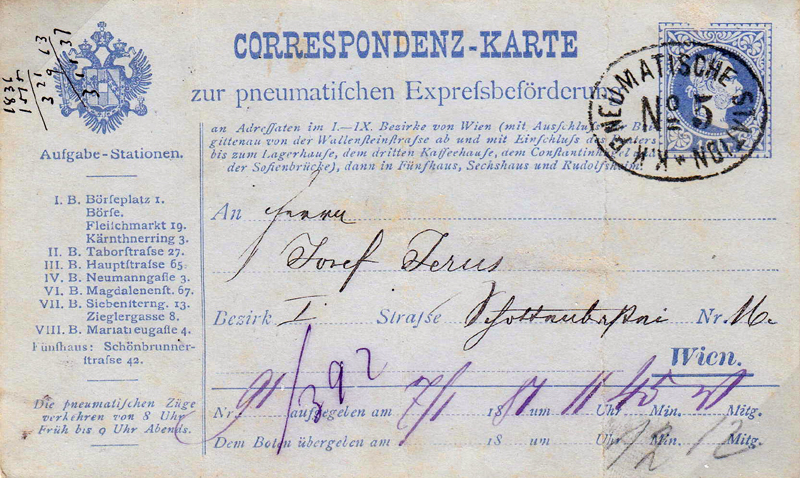 CORRESPONDENZ-KARTE
zur pneumatiſchen Expreſsbeförderun
an Adreſſaten im I.—IX. Bezirke von Wien (mit Ausſchluſs
gittenau von der Wallenſteinſtraſse ab und mit Einſchluſs des
bis zum Lagerhauſe, dem dritten Kaffeehauſe, dem Conſtantinhügel
der Sofienbrücke), dann in Fünfhaus, Sechshaus und Rudolfsheim.
K.K. PNEUMATISCHE STATION
No 5
1836
1515
321
9
63
37
Aufgabe-Stationen.
I. B. Börſeplatz 1.
Börſe.
Fleiſchmarkt 19.
Kärnthnerring 3.
II. B. Taborſtraſse 27.
III. B. Hauptſtraſse 65.
IV. B. Neumanngaſſe 3.
VI. B. Magdalenenſt. 67.
VII. B. Siebenſterng. 13.
Zieglergaſse 8.
VIII. B. Mariatreugaſse 4.
Fünfhaus: Schönbrunner-
ſtraſse 42.
Die pneumatiſchen Züge
verkehren von 8 Uhr
Früh bis 9 Uhr Abends.
An Herrn
Josef Ferus
Bezirk I Straſse Nr. 16.
Wien.
Nr. 91/392 aufgegeben am 7/1 1881 um 11 Uhr 45 Min. Mitg.
Dem Boten übergeben am 18 um Uhr Min. Mitg.
12